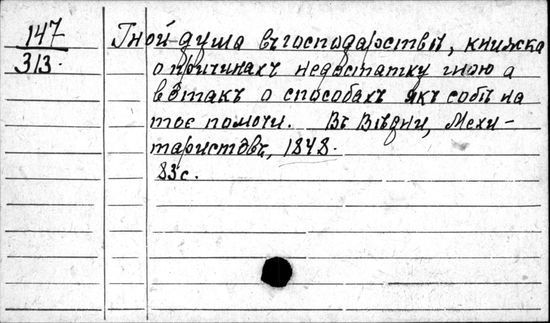 147
313.
Гной душа въ господарствѣ, книжка
о причинахъ недостатку гною а
вôтакъ о способахъ якъ собѣ на
тоє помочи. Въ Вѣдни, Мехи-
таристôвъ, 1848.
83 с.